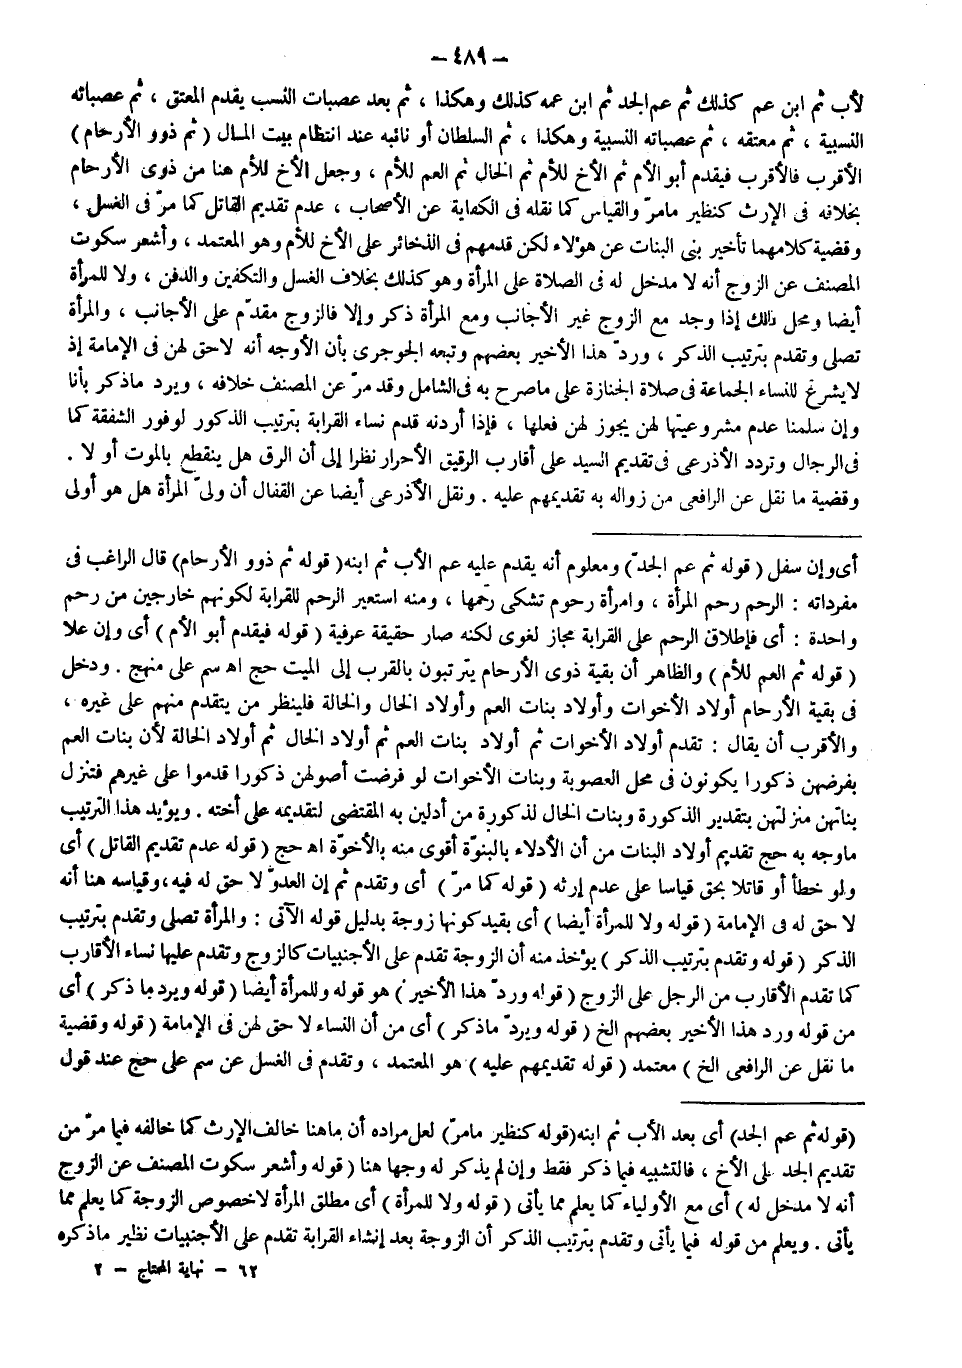 - ٤٨٩ -
لأب ثم ابن عم كذلك ثم عم الجد ثم ابن عمه كذلك وهكذا ، ثم بعد عصبات النسب يقدم المعتق ، ثم عصباته
النسبية ، ثم معتقه ، ثم عصباته النسبية وهكذا ، ثم السلطان أو نائبه عند انتظام بيت المال ( ثم ذوو الأرحام )
الأقرب فالأقرب فيقدم أبو الأم ثم الأخ للأم ثم الخال ثم العم للأم ، وجعل الأخ للأم هنا من ذوى الأرحام
بخلافه فى الإرث كنظير مامرّ والقياس كما نقله فى الكفاية عن الأصحاب ، عدم تقديم القاتل كما مرّ فى الغسل ،
وقضية كلامهما تأخير بنى البنات عن هؤلاء لكن قدمهم فى الذخائر على الأخ للأم وهو المعتمد ، وأشعر سكوت
المصنف عن الزوج أنه لا مدخل له فى الصلاة على المرأة وهو كذلك بخلاف الغسل والتكفين والدفن ، ولا للمرأة
أيضا ومحل ذلك إذا وجد مع الزوج غير الأجانب ومع المرأة ذكر وإلا فالزوج مقدّم على الأجانب ، والمرأة
تصلى وتقدم بترتيب الذكر ، وردّ هذا الأخير بعضهم وتبعه الجوجرى بأن الأوجه أنه لاحق لهن فى الإمامة إذ
لا يشرع للنساء الجماعة فى صلاة الجنازة على ماصرح به فى الشامل وقد مرّ عن المصنف خلافه ، ويرد ماذكر بأنا
وإن سلمنا عدم مشروعيتها لهن يجوز لهن فعلها ، فإذا أردنه قدم نساء القرابة بترتيب الذكور لوفور الشفقة كما
فى الرجال وتردد الأذرعى فى تقديم السيد على أقارب الرقيق الأحرار نظرا إلى أن الرق هل ينقطع بالموت أو لا .
وقضية ما نقل عن الرافعى من زواله به تقديمهم عليه . ونقل الأذرعى أيضا عن القفال أن ولىّ المرأة هل هو أولى
أى وإن سفل ( قوله ثم عم الجدّ ) ومعلوم أنه يقدم عليه عم الأب ثم ابنه ( قوله ثم ذوو الأرحام ) قال الراغب فى
مفرداته : الرحم رحم المرأة ، وامرأة رحوم تشكى رحمها ، ومنه استعير الرحم للقرابة لكونهم خارجين من رحم
واحدة : أى فإطلاق الرحم على القرابة مجاز لغوى لكنه صار حقيقة عرفية ( قوله فيقدم أبو الأم ) أى وإن علا
( قوله ثم العم للأم ) والظاهر أن بقية ذوى الأرحام يترتبون بالقرب إلى الميت حج اه سم على منهج . ودخل
فى بقية الأرحام أولاد الأخوات وأولاد بنات العم وأولاد الخال والخالة فلينظر من يتقدم منهم على غيره ،
والأقرب أن يقال : تقدم أولاد الأخوات ثم أولاد بنات العم ثم أولاد الخال ثم أولاد الخالة لأن بنات العم
بفرضهن ذكورا يكونون فى محل العصوبة وبنات الأخوات لو فرضت أصولهن ذكورا قدموا على غيرهم فتنزل
بناتهن منزلتهن بتقدير الذكورة وبنات الخال لذكورة من أدلين به المقتضى لتقديمه على أخته . ويؤيد هذا الترتيب
ماوجه به حج تقديم أولاد البنات من أن الأدلاء بالبنوّة أقوى منه بالأخوّة اه حج ( قوله عدم تقديم القاتل ) أى
ولو خطأ أو قاتلا بحق قياسا على عدم إرثه ( قوله كما مرّ ) أى وتقدم ثم إن العدوّ لا حق له فيه ، وقياسه هنا أنه
لا حق له فى الإمامة ( قوله ولا للمرأة أيضا ) أى بقيد كونها زوجة بدليل قوله الآتى : والمرأة تصلى وتقدم بترتيب
الذكر ( قوله وتقدم بترتيب الذكر ) يؤخذ منه أن الزوجة تقدم على الأجنبيات كالزوج وتقدم عليها نساء الأقارب
كما تقدم الأقارب من الرجل على الزوج ( قوله وردّ هذا الأخير ) هو قوله وللمرأة أيضا ( قوله ويرد ما ذكر ) أى
من قوله ورد هذا الأخير بعضهم الخ ( قوله ويردّ ماذكر ) أى من أن النساء لا حق لهن فى الإمامة ( قوله وقضية
ما نقل عن الرافعى الخ ) معتمد ( قوله تقديمهم عليه ) هو المعتمد ، وتقدم فى الغسل عن سم على حج عند قول
( قوله ثم عم الجد ) أى بعد الأب ثم ابنه ( قوله كنظير مامرّ ) لعل مراده أن ماهنا خالف الإرث كما خالفه فيما مرّ من
تقديم الجد على الأخ ، فالتشبيه فيما ذكر فقط وإن لم يذكر له وجها هنا ( قوله وأشعر سكوت المصنف عن الزوج
أنه لا مدخل له ) أى مع الأولياء كما يعلم مما يأتى ( قوله ولا للمرأة ) أى مطلق المرأة لا خصوص الزوجة كما يعلم مما
يأتى . ويعلم من قوله فيما يأتى وتقدم بترتيب الذكر أن الزوجة بعد إنشاء القرابة تقدم على الأجنبيات نظير ماذكره
٦٢ - نهاية المحتاج - ٢